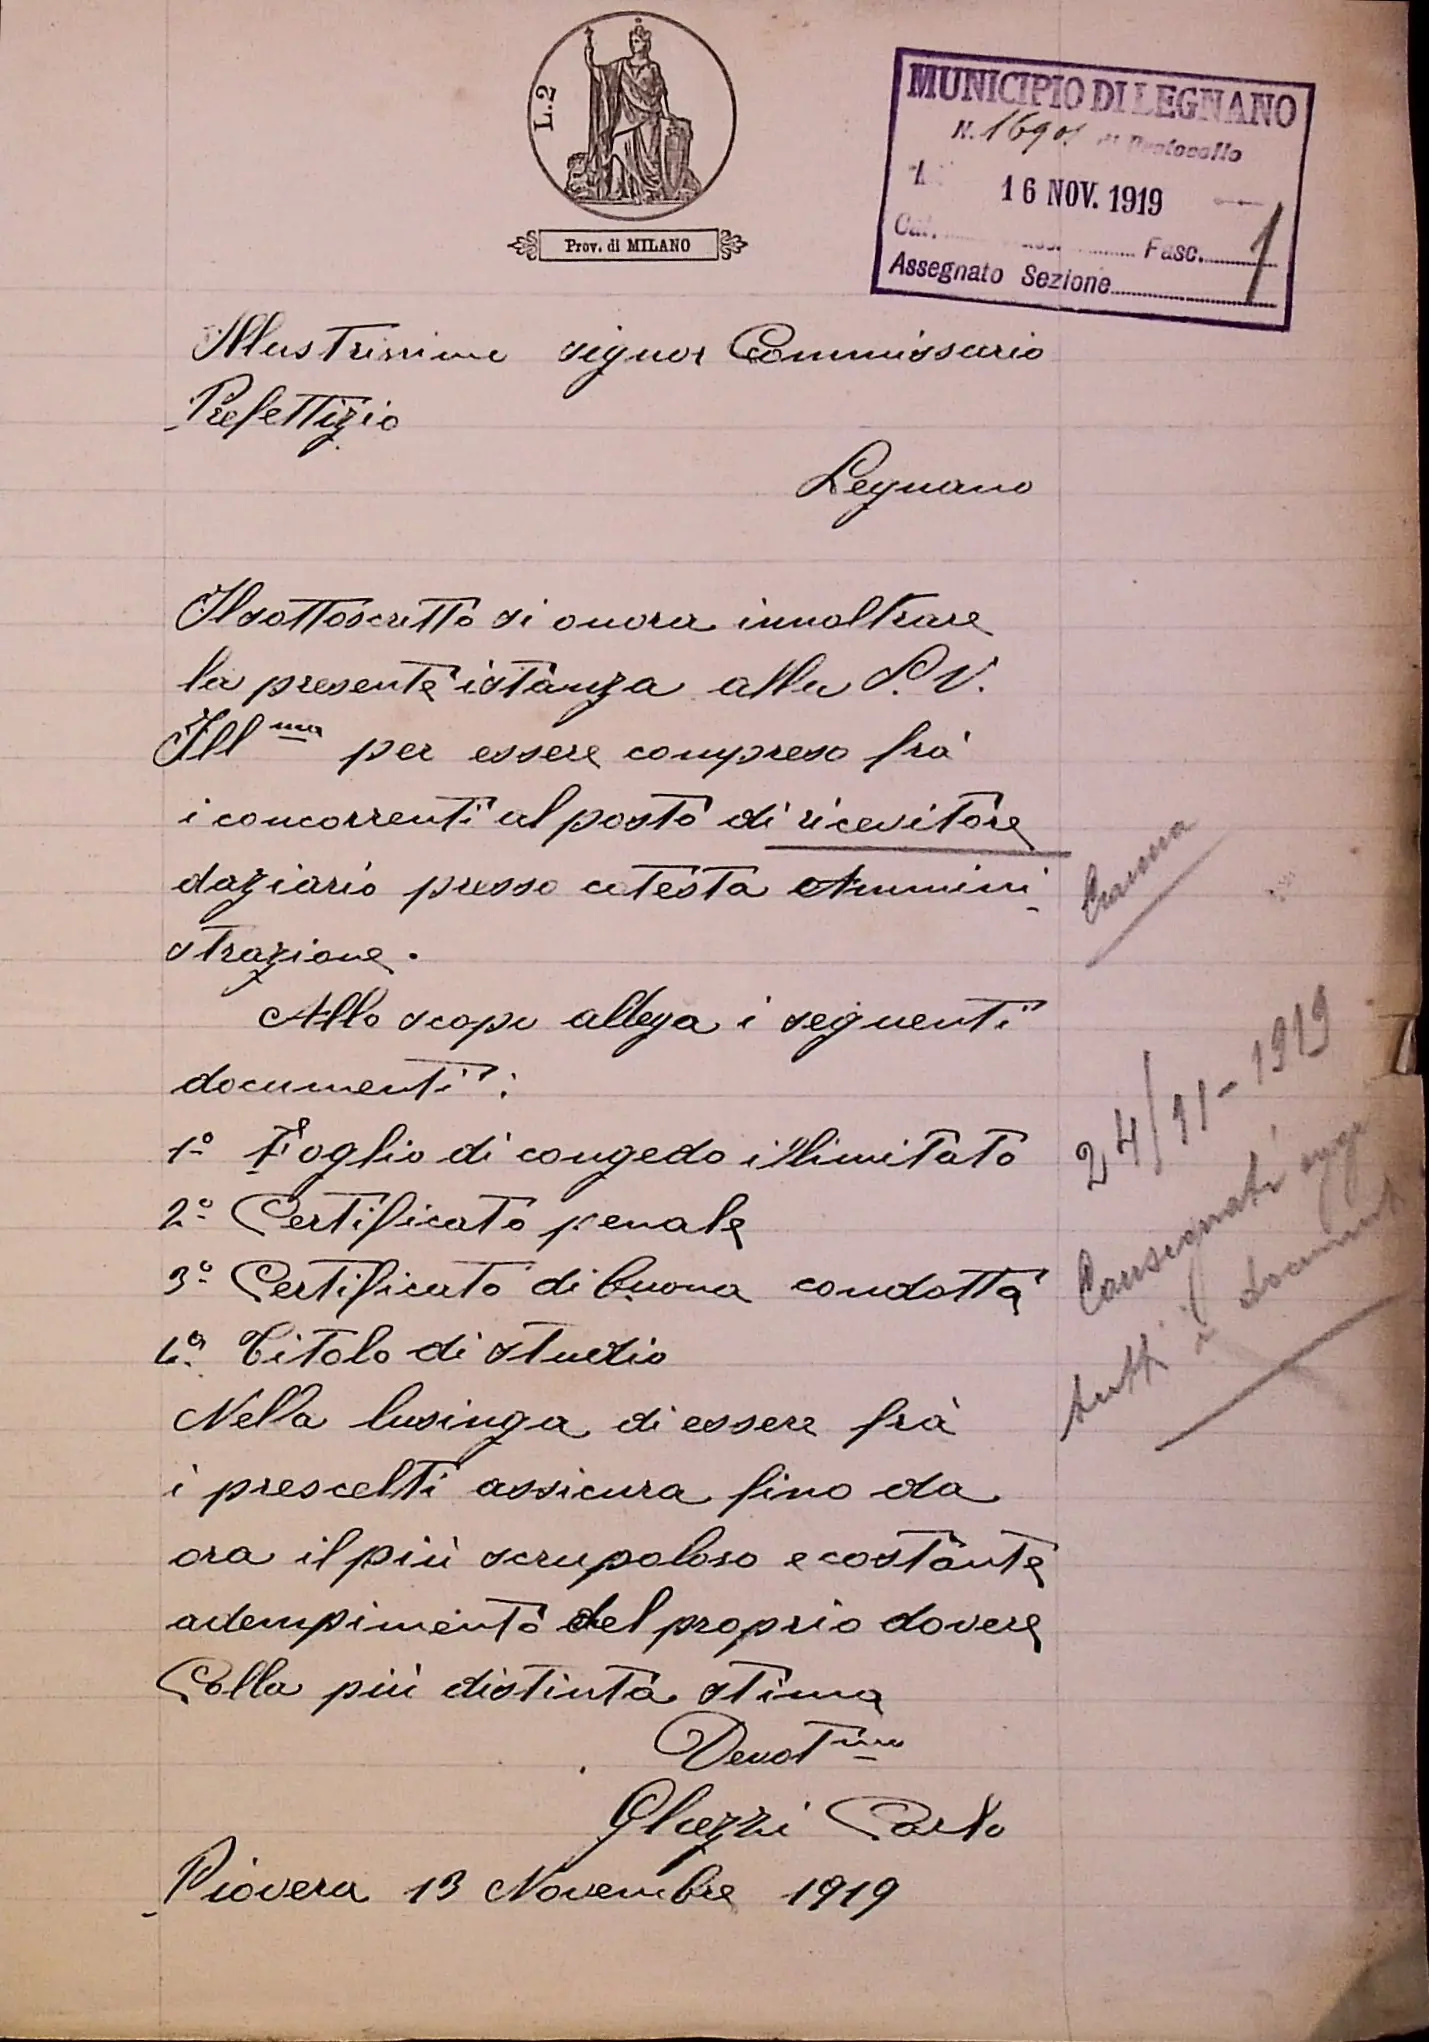 L.2
Prov. di MILANO
MUNICIPIO DI LEGNANO
N. 16901 di Protocollo
16 NOV. 1919
Cat. Fasc. 1
Assegnato Sezione
Illustrissimo signor Commissario
Prefettizio
Legnano
Il sottoscritto si onora innoltrare
la presente istanza alla S. V.
Ill ma per essere compreso frà
i concorrenti al posto di ricevitore
daziario presso cotesta Ammini
strazione.
Allo scopo allega i seguenti
documenti:
1º Foglio di congedo illimitato
2º Certificato penale
3º Certificato di buona condotta
4º Titolo di studio
Nella lusinga di essere frà
i prescelti assicura fino da
ora il più scrupoloso e costante
adempimento del proprio dovere
Colla più distinta stima
Devot mo
Carlo
Piovera 13 Novembre 1919
24/11-1919
Consegnati oggi
tutti i documenti